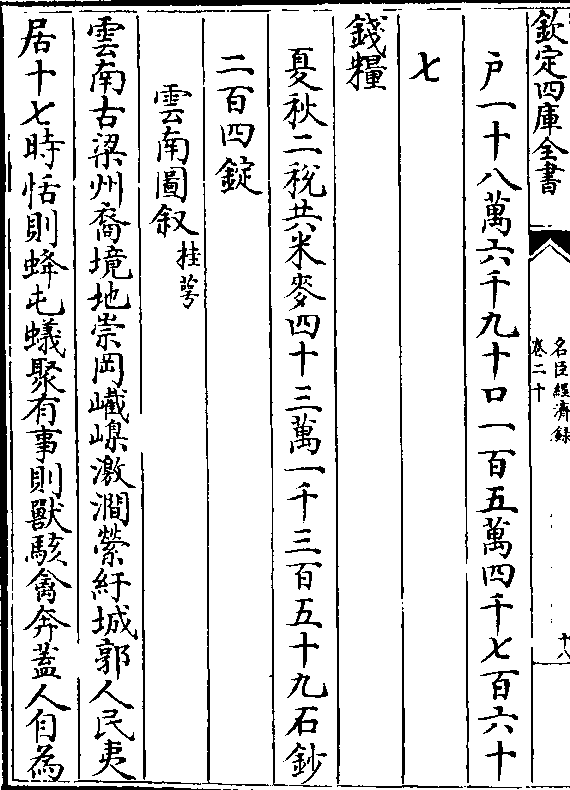 欽定四庫全書
名臣經濟錄
卷二十
十八
户一十八萬六千九十口一百五萬四千七百六十
七
錢糧
夏秋二税共米麥四十三萬一千三百五十九石鈔
二百四錠
雲南圖叙桂萼
雲南古梁州裔境地崇岡嶻嵲激澗縈紆城郭人民夷
居十七時恬則蜂屯蟻聚有事則獸駭禽奔蓋人自為